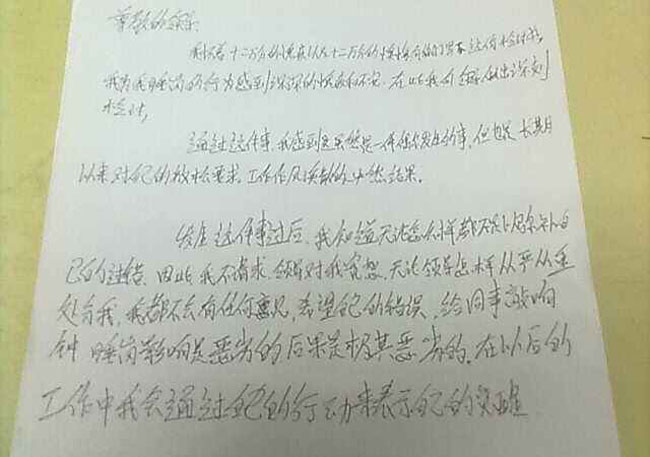 尊敬的领导:
我怀着十二万分的愧疚以及十二万分的懊悔向你们写下这份检讨书,
我为我睡岗的行为感到深深的愧疚和不安,在此我向领导做出深刻
检讨,
通过这件事,我感到这虽然是一件偶然发生的事,但也是长期
以来对自己的放松要求,工作作风涣散的必然结果。
发生这件事过后,我知道无论怎么样都不足以弥补自
己的过错,因此,我不请求领导对我宽恕,无论领导怎样从严从重
处分我,我都不会有任何意见,希望自己的错误,给同事敲响
钟 睡岗影响是恶劣的后果是极其恶劣的,在以后的
工作中我会通过自己的行动来表示自己的觉醒